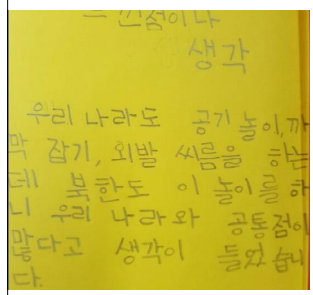 느낀점이나
생각
우리 나라도 공기 놀이,까
막 잡기, 외발 씨름을 하는
데 북한도 이 놀이를 하
니 우리 나라와 공통점이
많다고 생각이 들었습니
다.